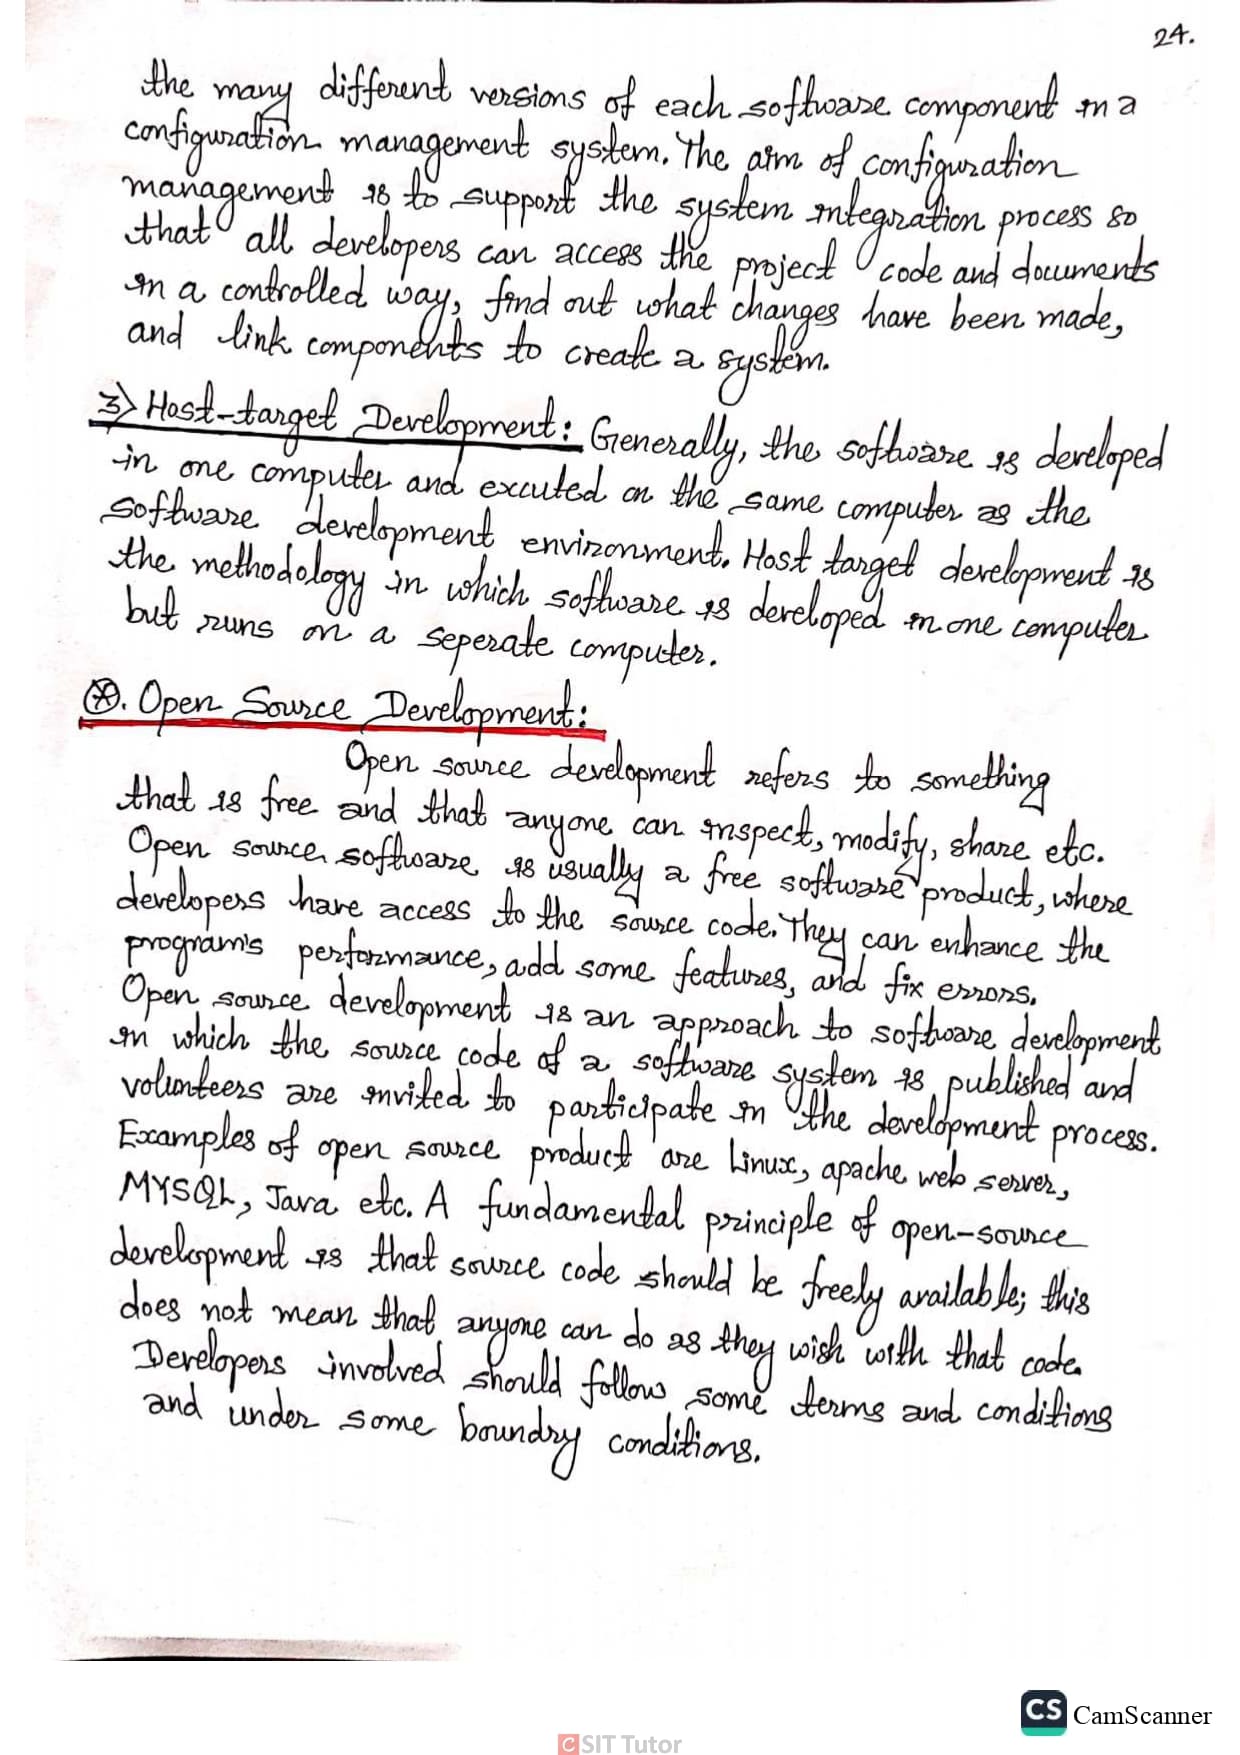 24.
the many different versions of each software component in a
configuration management system. The aim of configuration
management is to support the system integration process so
that all developers can access the project code and documents
in a controlled way, find out what changes have been made,
and link components to create a system.
3) Host-target Development: Generally, the software is developed
in one computer and excuted on the same computer as the
software development environment. Host target development is
the methodology in which software is developed in one computer
but runs on a seperate computer.
⊛. Open Source Development:
Open source development refers to something
that is free and that anyone can inspect, modify, share etc.
Open source software is usually a free software product, where
developers have access to the source code. They can enhance the
program's performance, add some features, and fix errors.
Open source development is an approach to software development
in which the source code of a software system is published and
volunteers are invited to participate in the development process.
Examples of open source product are Linux, apache web server,
MYSQL, Java etc. A fundamental principle of open-source
development is that source code should be freely available; this
does not mean that anyone can do as they wish with that code.
Developers involved should follow some terms and conditions
and under some boundry conditions.
CS CamScanner
CSIT Tutor